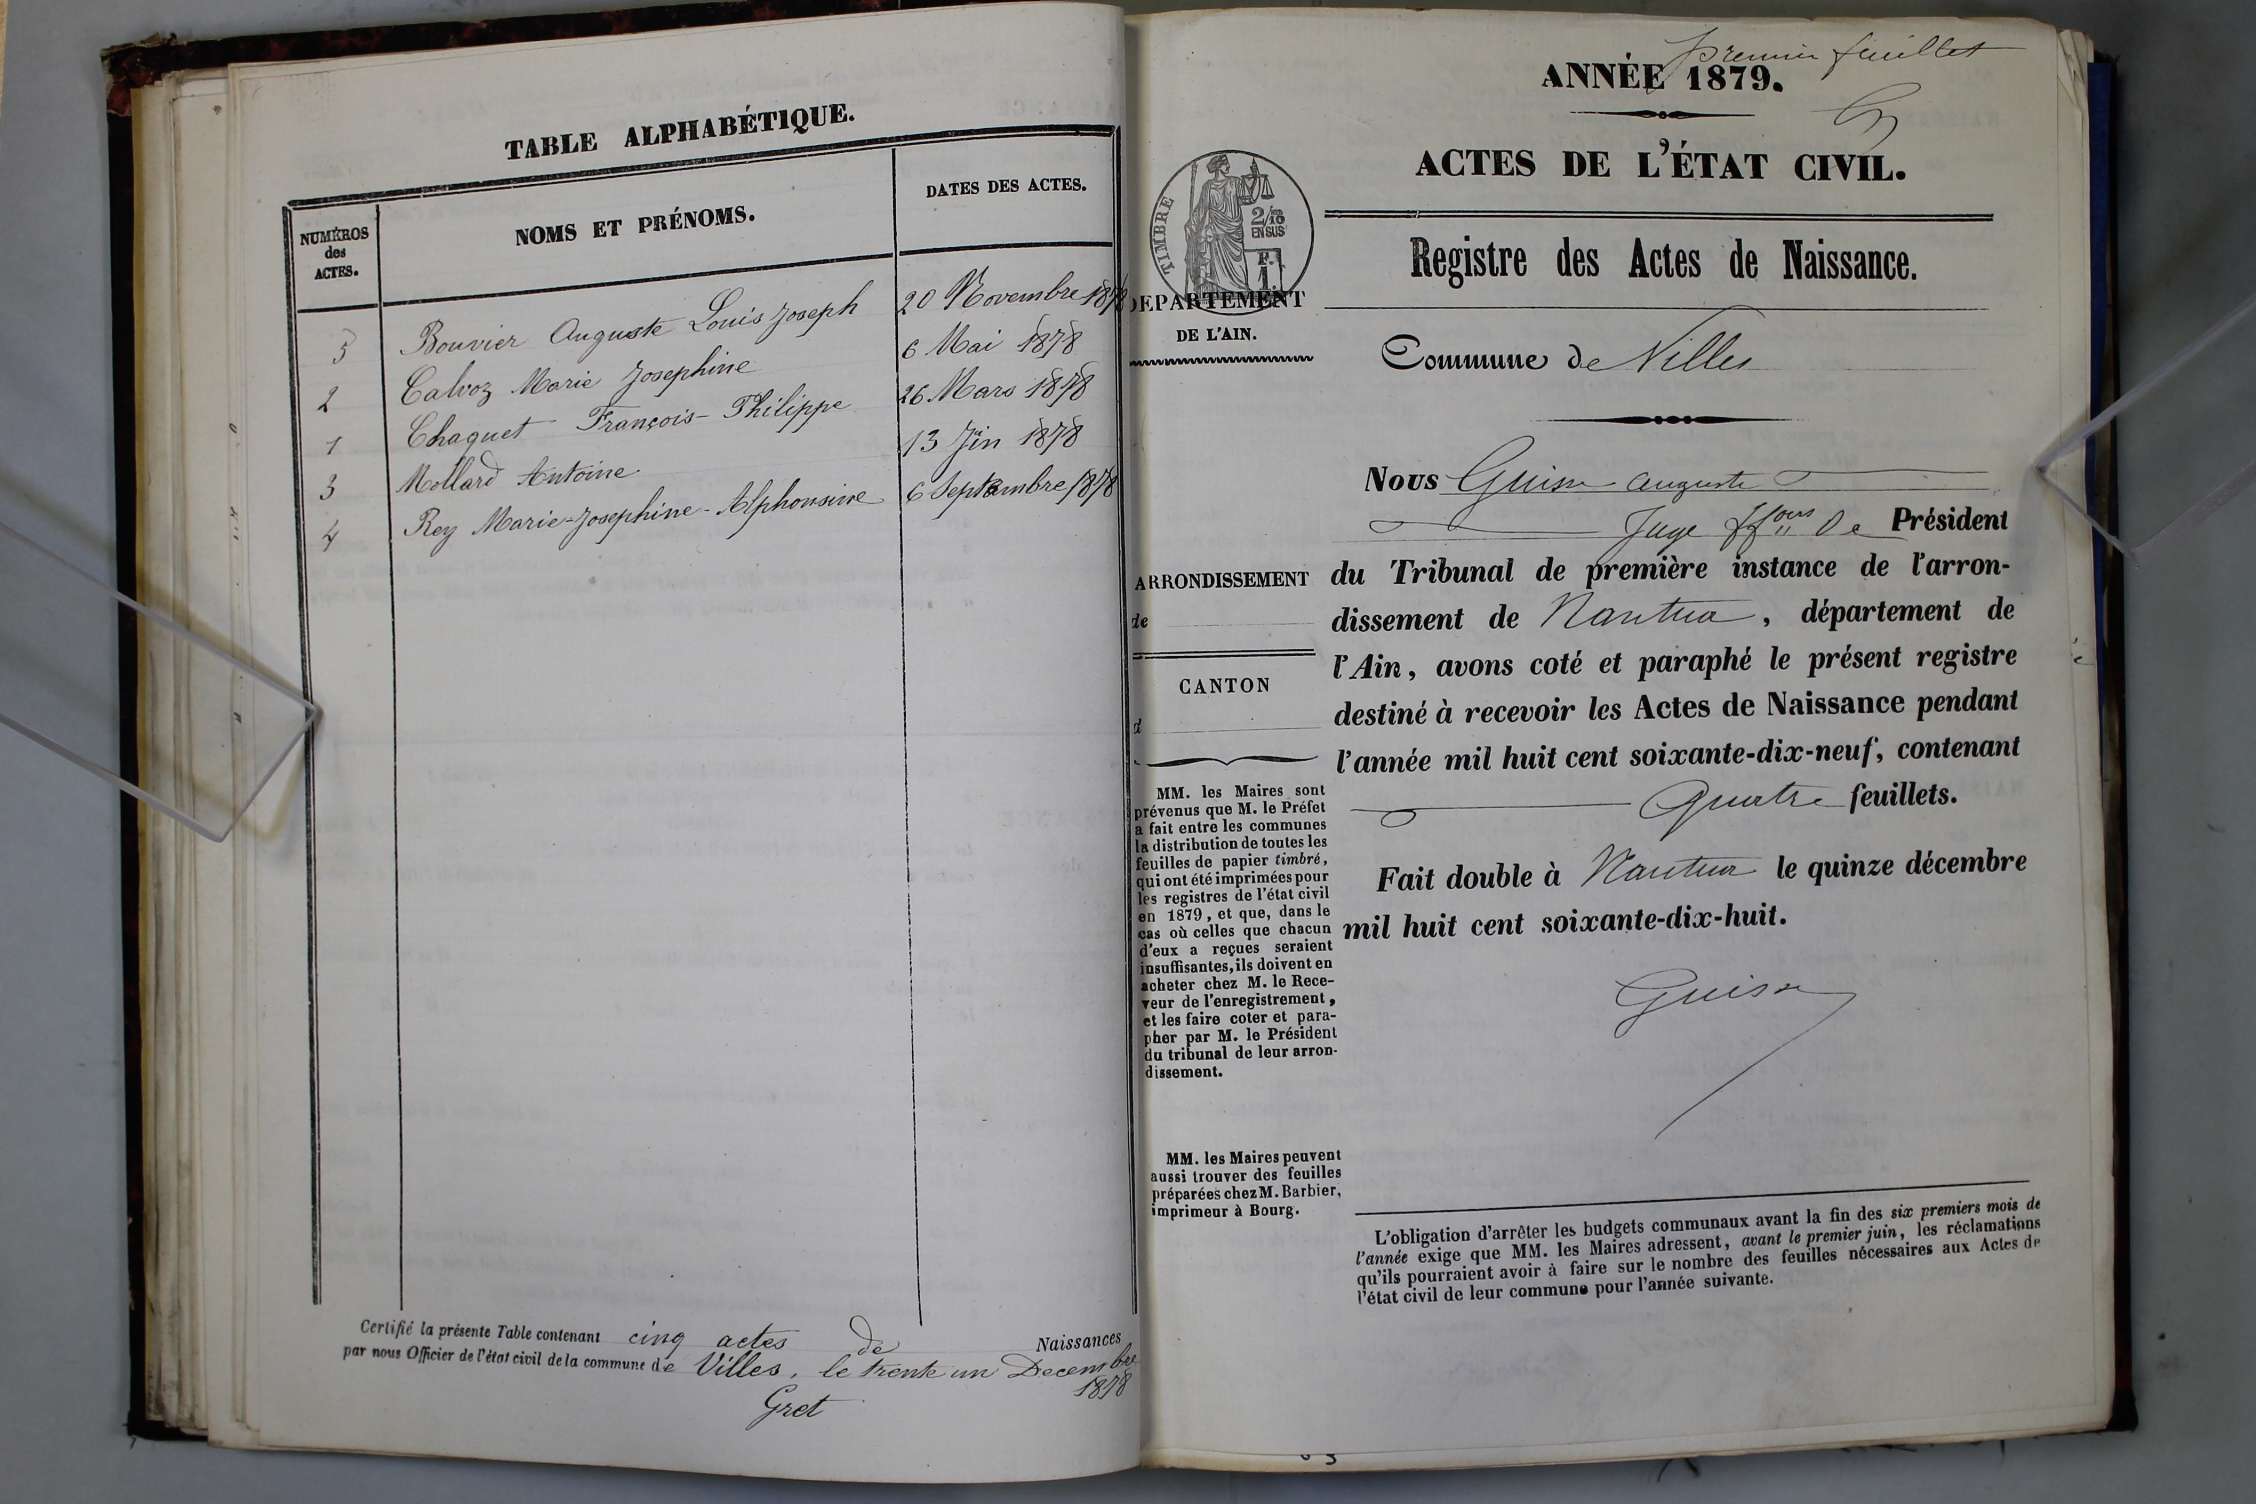 TABLE ALPHABÉTIQUE.
NUMÉROS
des
ACTES.
NOMS ET PRÉNOMS.
DATES DES ACTES.
5 Bouvier Auguste Louis Joseph 20 Novembre 1878
2 Calvoz Marie Josephine 6 Mai 1878
1 Chaquet François-Philippe 26 Mars 1878
3 Mollard Antoine 13 Jin 1878
4 Rey Marie-Josephine-Alphonsine 6 Septembre 1878
Certifié la présente Table contenant cinq actes de Naissances
par nous Officier de l'état civil de la commune de Villes, le trente un Decembre
1878
Gret
premier feuillet
ANNÉE 1879.
ACTES DE L'ÉTAT CIVIL.
TIMBRE
2/10
EN SUS
F.
1.
DEPARTEMENT
DE L'AIN.
Registre des Actes de Naissance.
Commune de Villes
Nous Auguste
Juge ffons de Président
du Tribunal de première instance de l'arron-
dissement de Nantua, département de
l'Ain, avons coté et paraphé le présent registre
destiné à recevoir les Actes de Naissance pendant
l'année mil huit cent soixante-dix-neuf, contenant
Quatre feuillets.
Fait double à Nantua le quinze décembre
mil huit cent soixante-dix-huit.
ARRONDISSEMENT
de
CANTON
d
MM. les Maires sont
prévenus que M. le Préfet
a fait entre les communes
la distribution de toutes les
feuilles de papier timbré,
qui ont été imprimées pour
les registres de l'état civil
en 1879, et que, dans le
cas où celles que chacun
d'eux a reçues seraient
insuffisantes, ils doivent en
acheter chez M. le Rece-
veur de l'enregistrement,
et les faire coter et para-
pher par M. le Président
du tribunal de leur arron-
dissement.
MM. les Maires peuvent
aussi trouver des feuilles
préparées chez M. Barbier,
imprimeur à Bourg.
L'obligation d'arrêter les budgets communaux avant la fin des six premiers mois de
l'année exige que MM. les Maires adressent, avant le premier juin, les réclamations
qu'ils pourraient avoir à faire sur le nombre des feuilles nécessaires aux Actes de
l'état civil de leur commune pour l'année suivante.